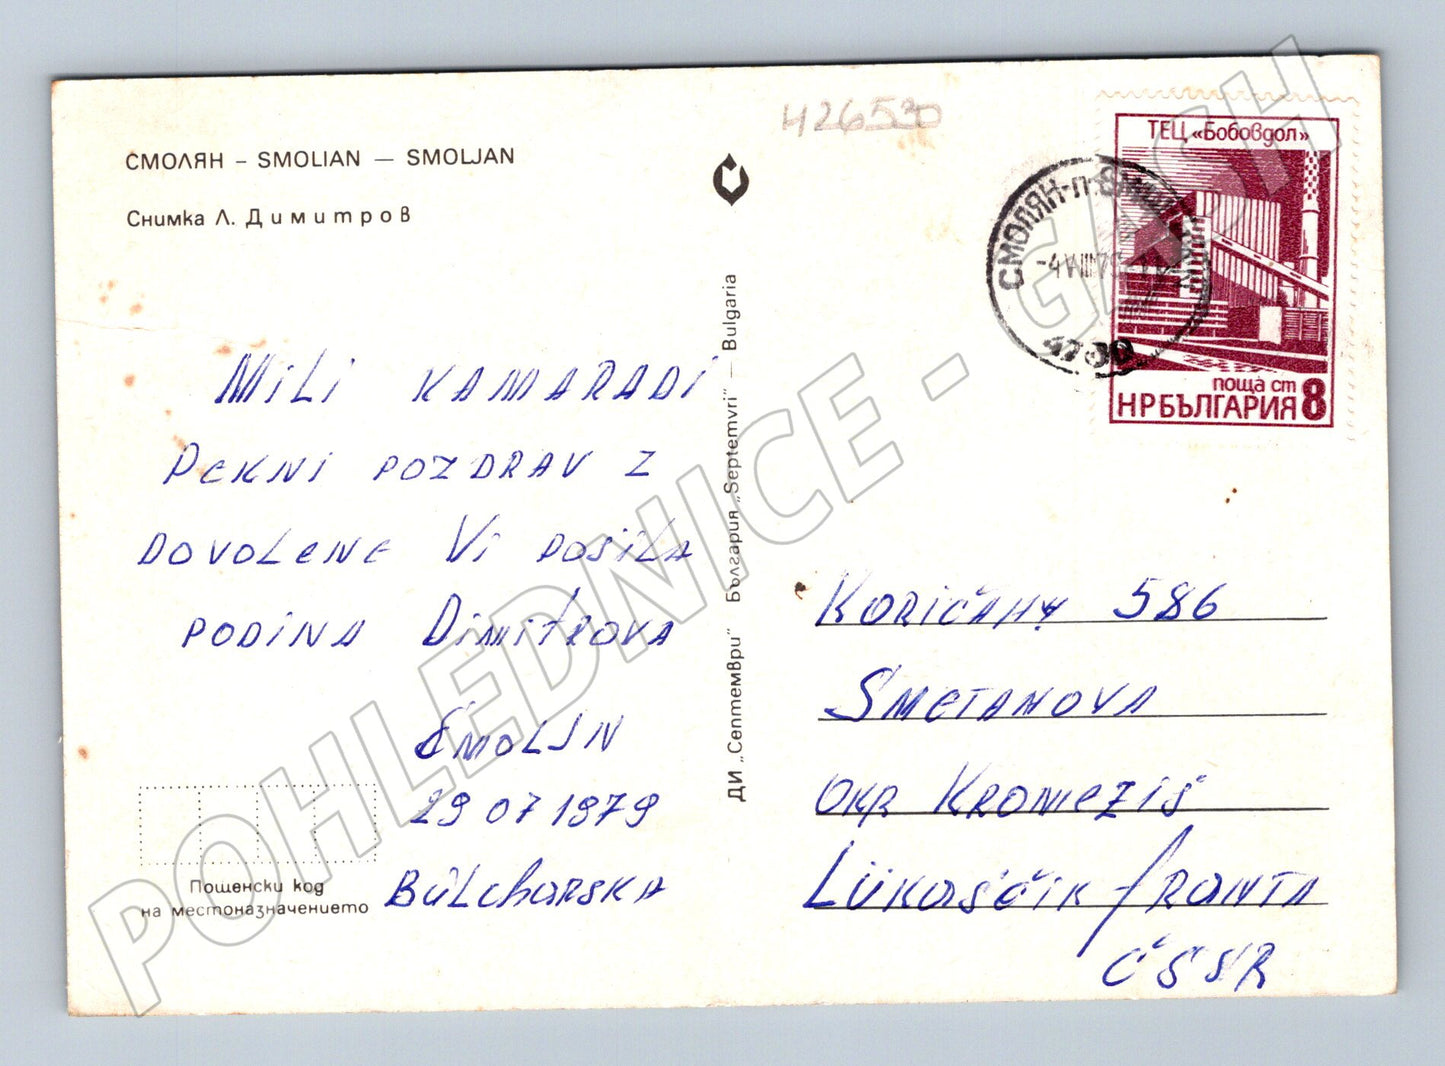 СМОЛЯН – SMOLIAN — SMOLJAN
Снимка Л. Димитров
MiLi KAMARADi
PEKNi POZDRAV Z
DOVOLENE Vi POSiLA
RODINA DiMiTROVA
SMOLJN
29 07 1979
BULchARSKA
Пощенски код
на местоназначението
ДИ „Септември" България „Septemvri" — Bulgaria
426530
ТЕЦ «Бобовдол»
поща ст
НРБЪЛГАРИЯ 8
СМОЛЯН-п.
-4.VIII.79
4700
KORIČANY 586
SMETANOVA
OKR KROMEZIŠ
LUKAŠČIK FRANTA
ČSSR
POHLEDNICE - GASH